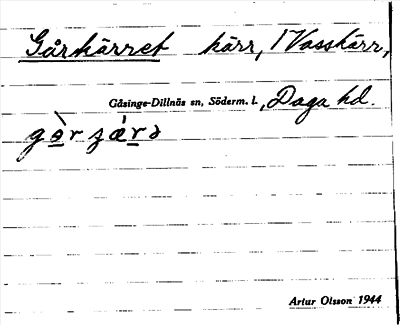 Gårkärret kärr, 1 Vasskärr,
Gåsinge-Dillnäs sn, Söderm. l., Daga hd.
Artur Olsson 1944